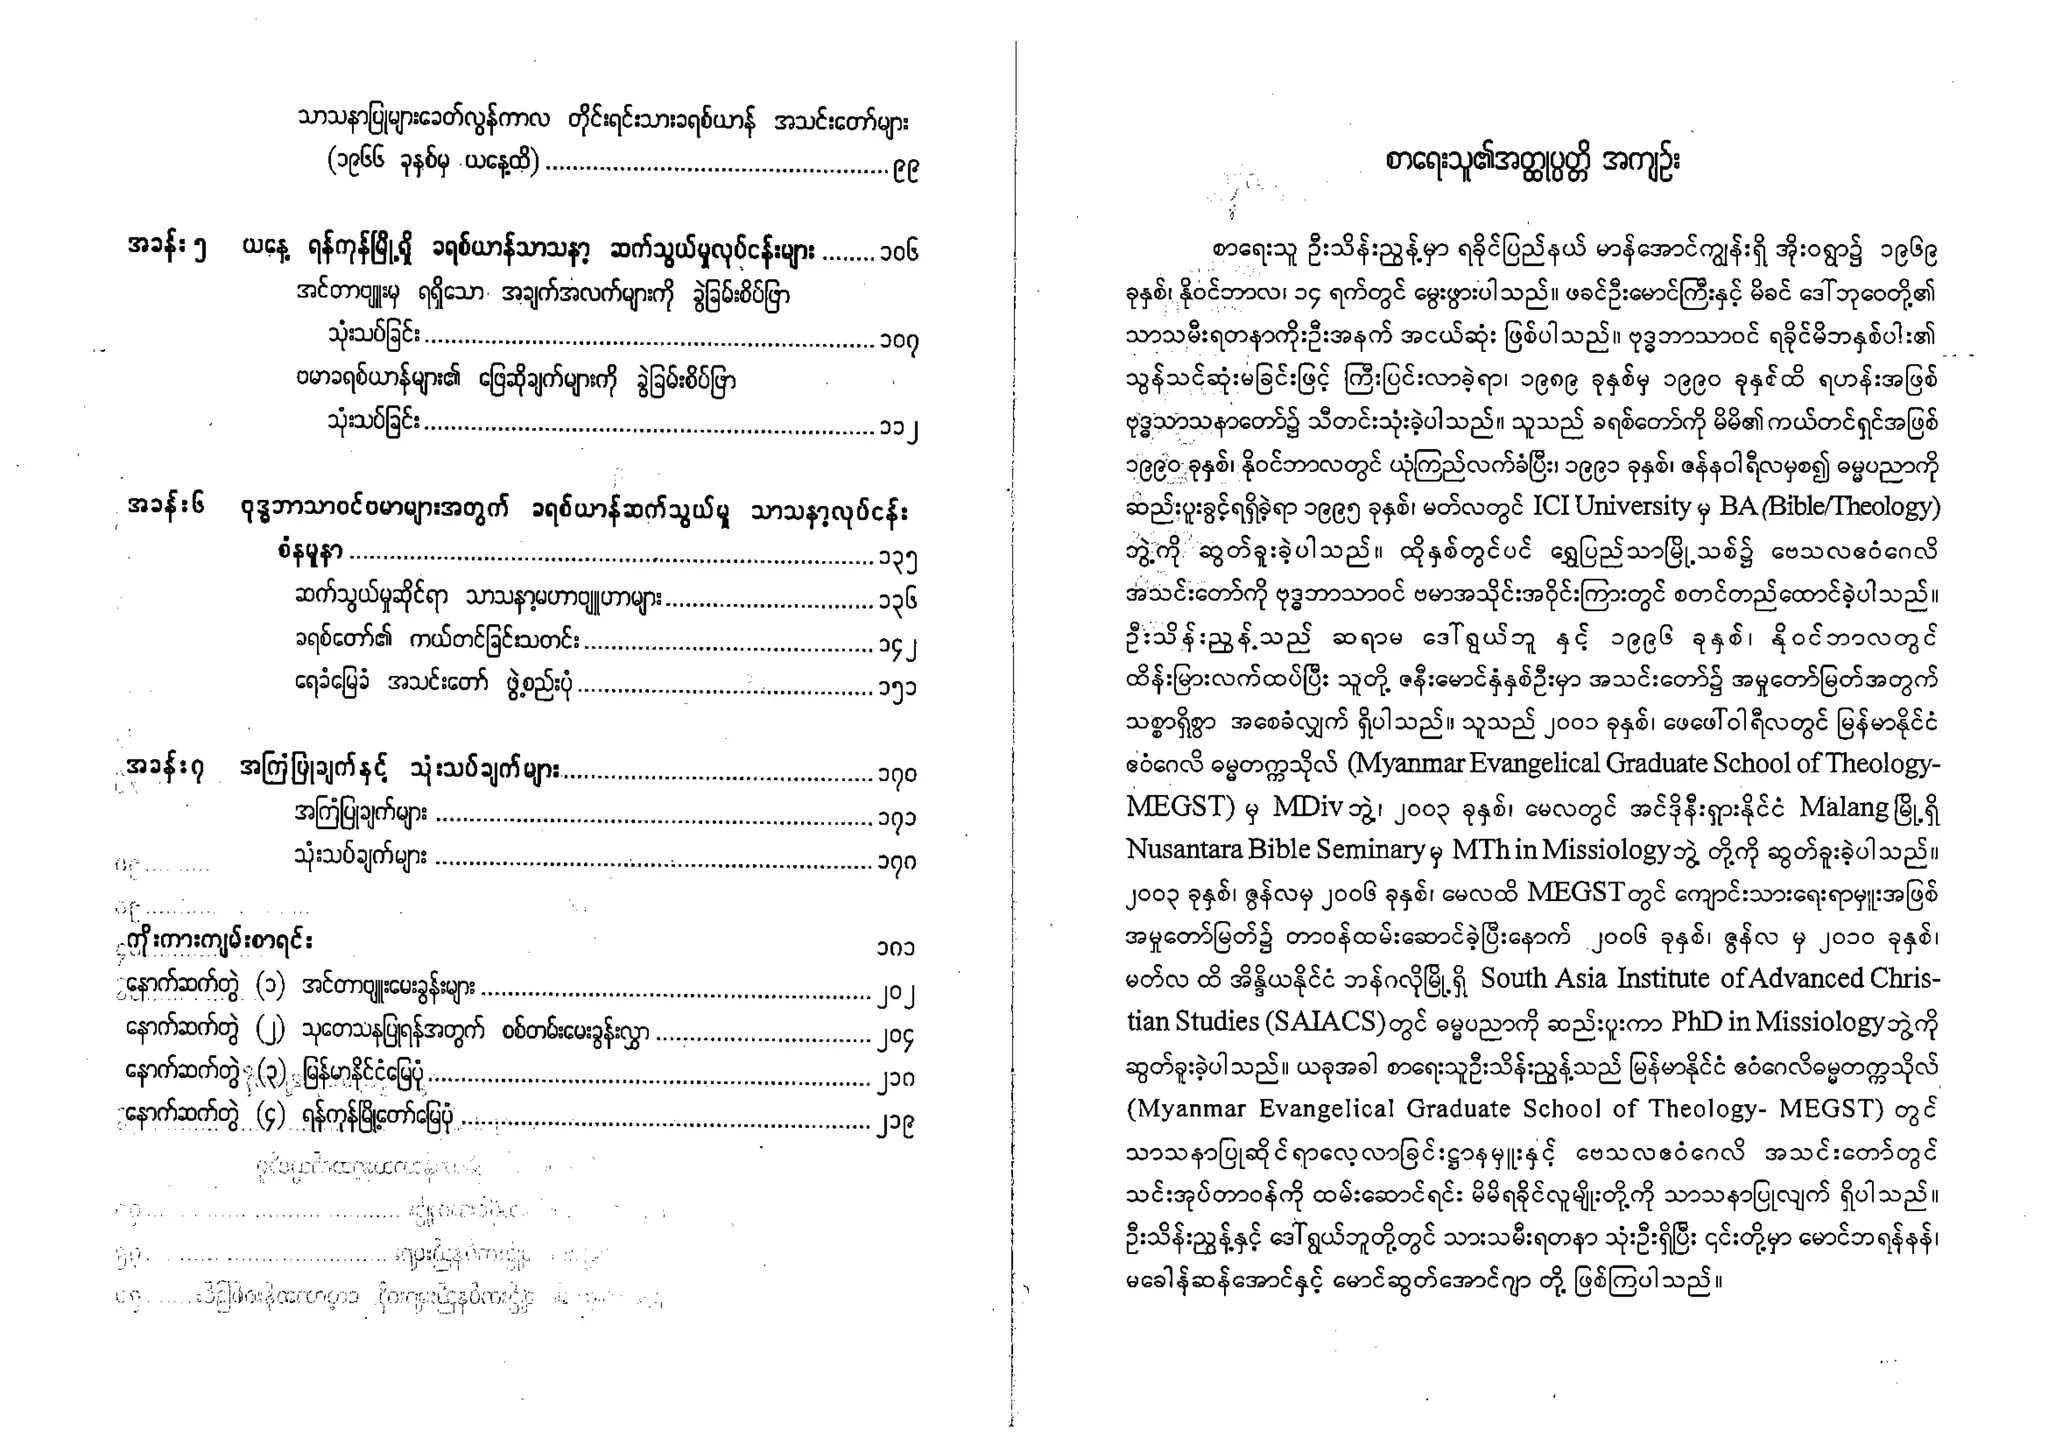 သာသနာပြုများခေတ်လွန်ကာလ တိုင်းရင်းသားခရစ်ယာန် အသင်းတော်များ
(၁၉၆၆ ခုနှစ်မှ ယနေ့ထိ) ................................................ ၉၉
အခန်း ၅ ယနေ့ ရန်ကုန်မြို့ရှိ ခရစ်ယာန်သာသနာ့ ဆက်သွယ်မှုလုပ်ငန်းများ ........ ၁၀၆
အင်တာဗျူးမှ ရရှိသော အချက်အလက်များကို ခွဲခြမ်းစိပ်ဖြာ
သုံးသပ်ခြင်း ................................................ ၁၀၇
ဗမာခရစ်ယာန်များ၏ ဖြေဆိုချက်များကို ခွဲခြမ်းစိပ်ဖြာ
သုံးသပ်ခြင်း ................................................ ၁၁၂
အခန်း ၆ ဗုဒ္ဓဘာသာဝင်ဗမာများအတွက် ခရစ်ယာန်ဆက်သွယ်မှု သာသနာ့လုပ်ငန်း
စံနမူနာ ................................................ ၁၃၅
ဆက်သွယ်မှုဆိုင်ရာ သာသနာ့မဟာဗျူဟာများ ................................ ၁၃၆
ခရစ်တော်၏ ကယ်တင်ခြင်းသတင်း ................................ ၁၄၂
ရေခံမြေခံ အသင်းတော် ဖွဲ့စည်းပုံ ................................ ၁၅၁
အခန်း ၇ အကြံပြုချက်နှင့် သုံးသပ်ချက်များ ................................ ၁၇၀
အကြံပြုချက်များ ................................................ ၁၇၁
သုံးသပ်ချက်များ ................................................ ၁၇၈
ကိုးကားကျမ်းစာရင်း ၁၈၁
နောက်ဆက်တွဲ (၁) အင်တာဗျူးမေးခွန်းများ ................................ ၂၀၂
နောက်ဆက်တွဲ (၂) သုတေသနပြုရန်အတွက် စစ်တမ်းမေးခွန်းလွှာ ................ ၂၀၄
နောက်ဆက်တွဲ (၃) မြန်မာနိုင်ငံမြေပုံ ................................ ၂၁၈
နောက်ဆက်တွဲ (၄) ရန်ကုန်မြို့တော်မြေပုံ ................................ ၂၁၉
စာရေးသူ၏အတ္ထုပ္ပတ္တိ အကျဉ်း
စာရေးသူ ဦးသိန်းညွန့်မှာ ရခိုင်ပြည်နယ် မာန်အောင်ကျွန်းရှိ အိုးဝရွာ၌ ၁၉၆၉
ခုနှစ်၊ နိုဝင်ဘာလ၊ ၁၄ ရက်တွင် မွေးဖွားပါသည်။ ဖခင်ဦးမောင်ကြီးနှင့် မိခင် ဒေါ်ဘုဝေတို့၏
သားသမီးရတနာကိုးဦးအနက် အငယ်ဆုံး ဖြစ်ပါသည်။ ဗုဒ္ဓဘာသာဝင် ရခိုင်မိဘနှစ်ပါး၏
သွန်သင်ဆုံးမခြင်းဖြင့် ကြီးပြင်းလာခဲ့ရာ၊ ၁၉၈၉ ခုနှစ်မှ ၁၉၉၀ ခုနှစ်ထိ ရဟန်းအဖြစ်
ဗုဒ္ဓသာသနာတော်၌ သီတင်းသုံးခဲ့ပါသည်။ သူသည် ခရစ်တော်ကို မိမိ၏ကယ်တင်ရှင်အဖြစ်
၁၉၉၀ ခုနှစ်၊ နိုဝင်ဘာလတွင် ယုံကြည်လက်ခံပြီး၊ ၁၉၉၁ ခုနှစ်၊ ဇန်နဝါရီလမှစ၍ ဓမ္မပညာကို
ဆည်းပူးခွင့်ရရှိခဲ့ရာ ၁၉၉၅ ခုနှစ်၊ မတ်လတွင် ICI University မှ BA (Bible/Theology)
ဘွဲ့ကို ဆွတ်ခူးခဲ့ပါသည်။ ထိုနှစ်တွင်ပင် ရွှေပြည်သာမြို့သစ်၌ ဗေသလဧဝံဂေလိ
အသင်းတော်ကို ဗုဒ္ဓဘာသာဝင် ဗမာအသိုင်းအဝိုင်းကြားတွင် စတင်တည်ထောင်ခဲ့ပါသည်။
ဦးသိန်းညွန့်သည် ဆရာမ ဒေါ်ရွယ်ဘူ နှင့် ၁၉၉၆ ခုနှစ်၊ နိုဝင်ဘာလတွင်
ထိန်းမြားလက်ထပ်ပြီး သူတို့ ဇနီးမောင်နှံနှစ်ဦးမှာ အသင်းတော်၌ အမှုတော်မြတ်အတွက်
သစ္စာရှိစွာ အစေခံလျှက် ရှိပါသည်။ သူသည် ၂၀၀၁ ခုနှစ်၊ ဖေဖော်ဝါရီလတွင် မြန်မာနိုင်ငံ
ဧဝံဂေလိ ဓမ္မတက္ကသိုလ် (Myanmar Evangelical Graduate School of Theology-
MEGST) မှ MDiv ဘွဲ့၊ ၂၀၀၃ ခုနှစ်၊ မေလတွင် အင်ဒိုနီးရှားနိုင်ငံ Malang မြို့ရှိ
Nusantara Bible Seminary မှ MTh in Missiology ဘွဲ့ တို့ကို ဆွတ်ခူးခဲ့ပါသည်။
၂၀၀၃ ခုနှစ်၊ ဇွန်လမှ ၂၀၀၆ ခုနှစ်၊ မေလထိ MEGST တွင် ကျောင်းသားရေးရာမှူးအဖြစ်
အမှုတော်မြတ်၌ တာဝန်ထမ်းဆောင်ခဲ့ပြီးနောက် ၂၀၀၆ ခုနှစ်၊ ဇွန်လ မှ ၂၀၁၀ ခုနှစ်၊
မတ်လ ထိ အိန္ဒိယနိုင်ငံ ဘန်ဂလိုမြို့ရှိ South Asia Institute of Advanced Chris-
tian Studies (SAIACS) တွင် ဓမ္မပညာကို ဆည်းပူးကာ PhD in Missiology ဘွဲ့ကို
ဆွတ်ခူးခဲ့ပါသည်။ ယခုအခါ စာရေးသူဦးသိန်းညွန့်သည် မြန်မာနိုင်ငံ ဧဝံဂေလိဓမ္မတက္ကသိုလ်
(Myanmar Evangelical Graduate School of Theology- MEGST) တွင်
သာသနာပြုဆိုင်ရာလေ့လာခြင်းဌာနမှူးနှင့် ဗေသလဧဝံဂေလိ အသင်းတော်တွင်
သင်းအုပ်တာဝန်ကို ထမ်းဆောင်ရင်း မိမိရခိုင်လူမျိုးတို့ကို သာသနာပြုလျက် ရှိပါသည်။
ဦးသိန်းညွန့်နှင့် ဒေါ်ရွယ်ဘူတို့တွင် သားသမီးရတနာ သုံးဦးရှိပြီး ၎င်းတို့မှာ မောင်ဘရန်နန်၊
မခေါန်ဆန်အောင်နှင့် မောင်ဆွတ်အောင်ဂျာ တို့ ဖြစ်ကြပါသည်။